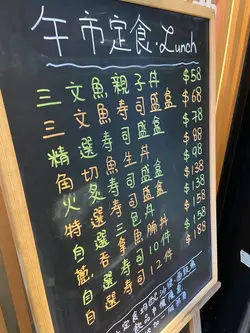 午市定食·Lunch
三文魚親子丼 $58
三文魚寿司盛盒 $68
精選寿司盛盒 $78
角切魚生丼 $98
火炙寿司盛盒 $98
特選寿司盛盒 $138
自選三色丼 $138
蔥吞拿魚腩丼 $158
自選寿司10件 $158
自選寿司12件 $188